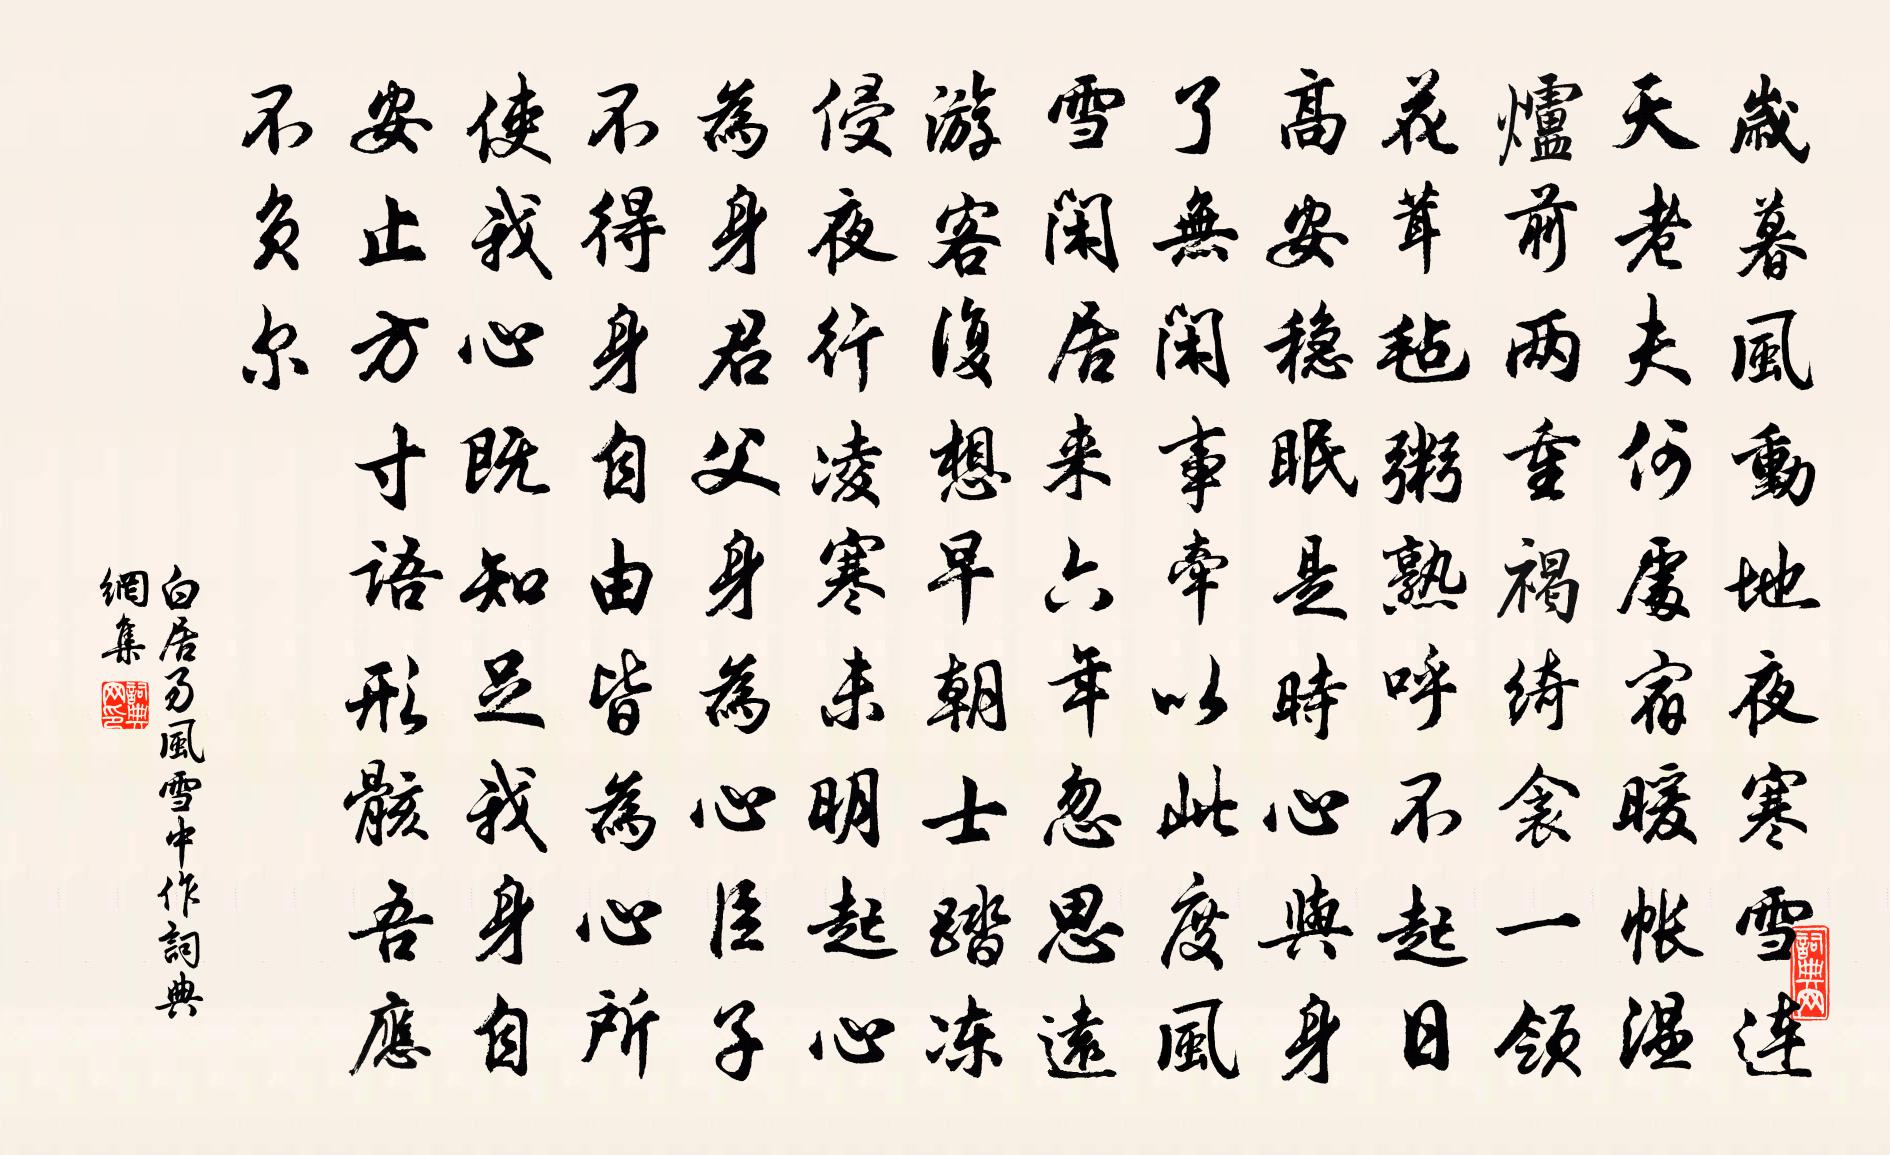 歲暮風動地夜寒雪連
天老夫何處宿暖帳温
爐前兩重褐綺衾一領
花茸毡粥熟呼不起日
高安穏眠是時心與身
了無閑事牽以此度風
雪閑居来六年忽思遠
游客復想早朝士踏冻
侵夜行凌寒未明起心
為身君父身為心臣子
不得身自由皆為心所
使我心既知足我身自
安止方寸語形骸吾應
不负尔
白居易風雪中作詞典
網集
詞典网
詞典网印